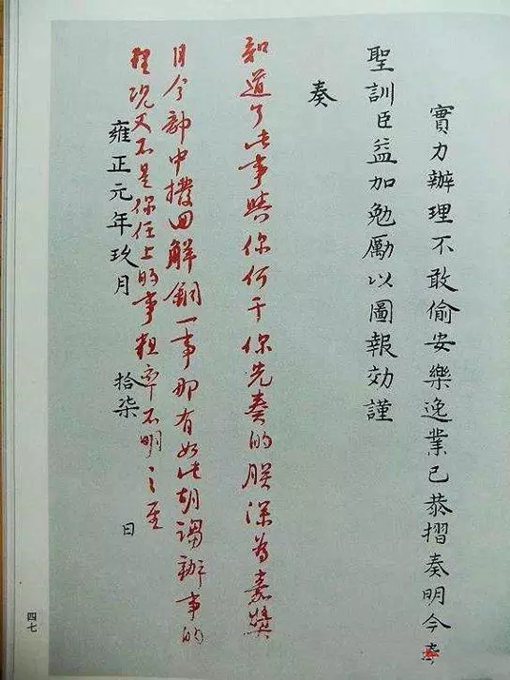 實力辦理不敢偷安樂逸業已恭摺奏明今
聖訓臣益加勉勵以圖報効謹
奏
知道了此事與你何干你先奏的朕深為嘉獎
目今部中撥回解銅一事那有如此胡謅辦事的
理況又不是你任上的事粗率不明之至
雍正元年玖月 拾柒 日
四七